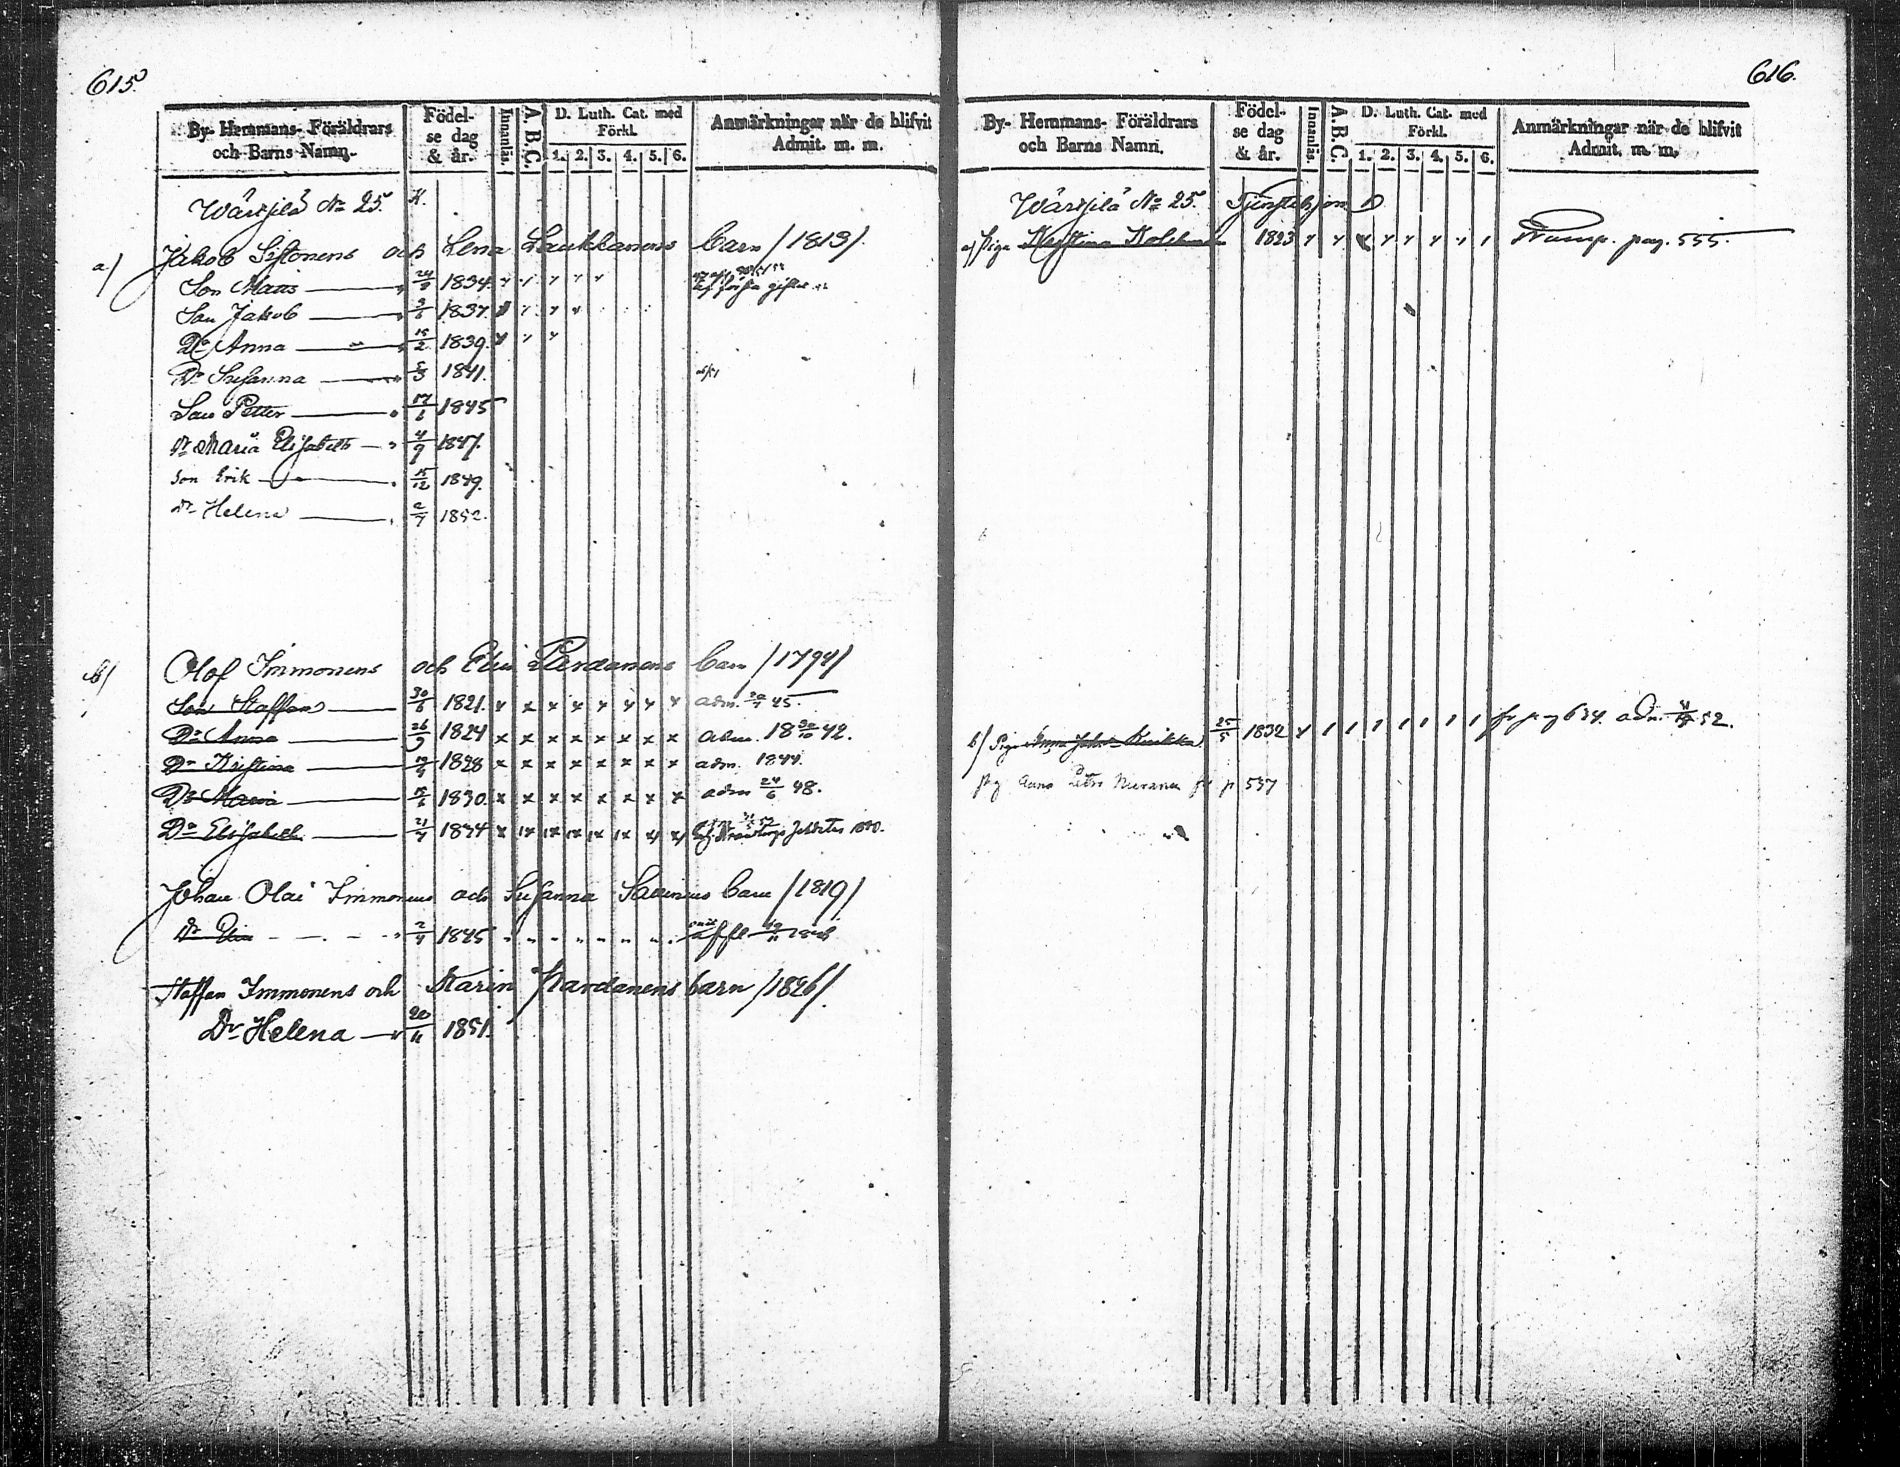 615.
By- Hemmans- Föräldrars
och Barns Namn.
Födel-
se dag
& år.
Innanläs.
A.B.C.
D. Luth. Cat. med
Förkl.
1. 2. 3. 4. 5. 6.
Anmärkningar när de blifvit
Admit. m. m.
Wärtsilä No 25. K.
a) Jakob Sistonens och Lena Laukkanens barn /1813/.
Son Matts 24 1834.
Son Jakob 1837.
Dr Anna 15/2 1839.
Dr Susanna 1841.
Son Petter 17/6 1845
Dr Maria Elisabeth 4/9 1847.
Son Erik 15/12 1849.
Dr Helena 2/7 1852.
b) Olof Immonens och Elin Pardanens barn /1794/
Son Staffan 30/6 1821. x x x x x x x x adm. 45.
Dr Anna 26/9 1824 x x x x x x x x adm. 18 30/10 42.
Dr Kristina 1828 x x x x x x x x adm. 1844.
Dr Maria 15 1830 x x x x x x x x adm 24/6 48.
Dr Elisabeth 21 1834
Johan Olai Immonens och Susanna barn /1819/
Dr Elin 2/4 1845
Staffan Immonens och Karin Pardanens barn /1826/.
Dr Helena 20/11 1851.
616.
By- Hemmans- Föräldrars
och Barns Namn.
Födel-
se dag
& år.
Innanläs.
A.B.C.
D. Luth. Cat. med
Förkl.
1. 2. 3. 4. 5. 6.
Anmärkningar när de blifvit
Admit. m. m.
Wärtsilä No 25. Tjenstehjon
a) Piga Kristina 1823 pag. 555.
b) Piga Anna 25/5 1832 634. adm. 52.
Anna Petri fr p 537